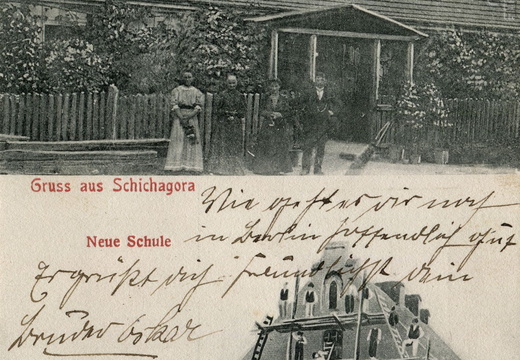 Gruss aus Schichagora
Wie geht es dir noch
Neue Schule
in Berlin hoffendlich gut
Es grüßt dich freundlichst dein
Bruder Oskar